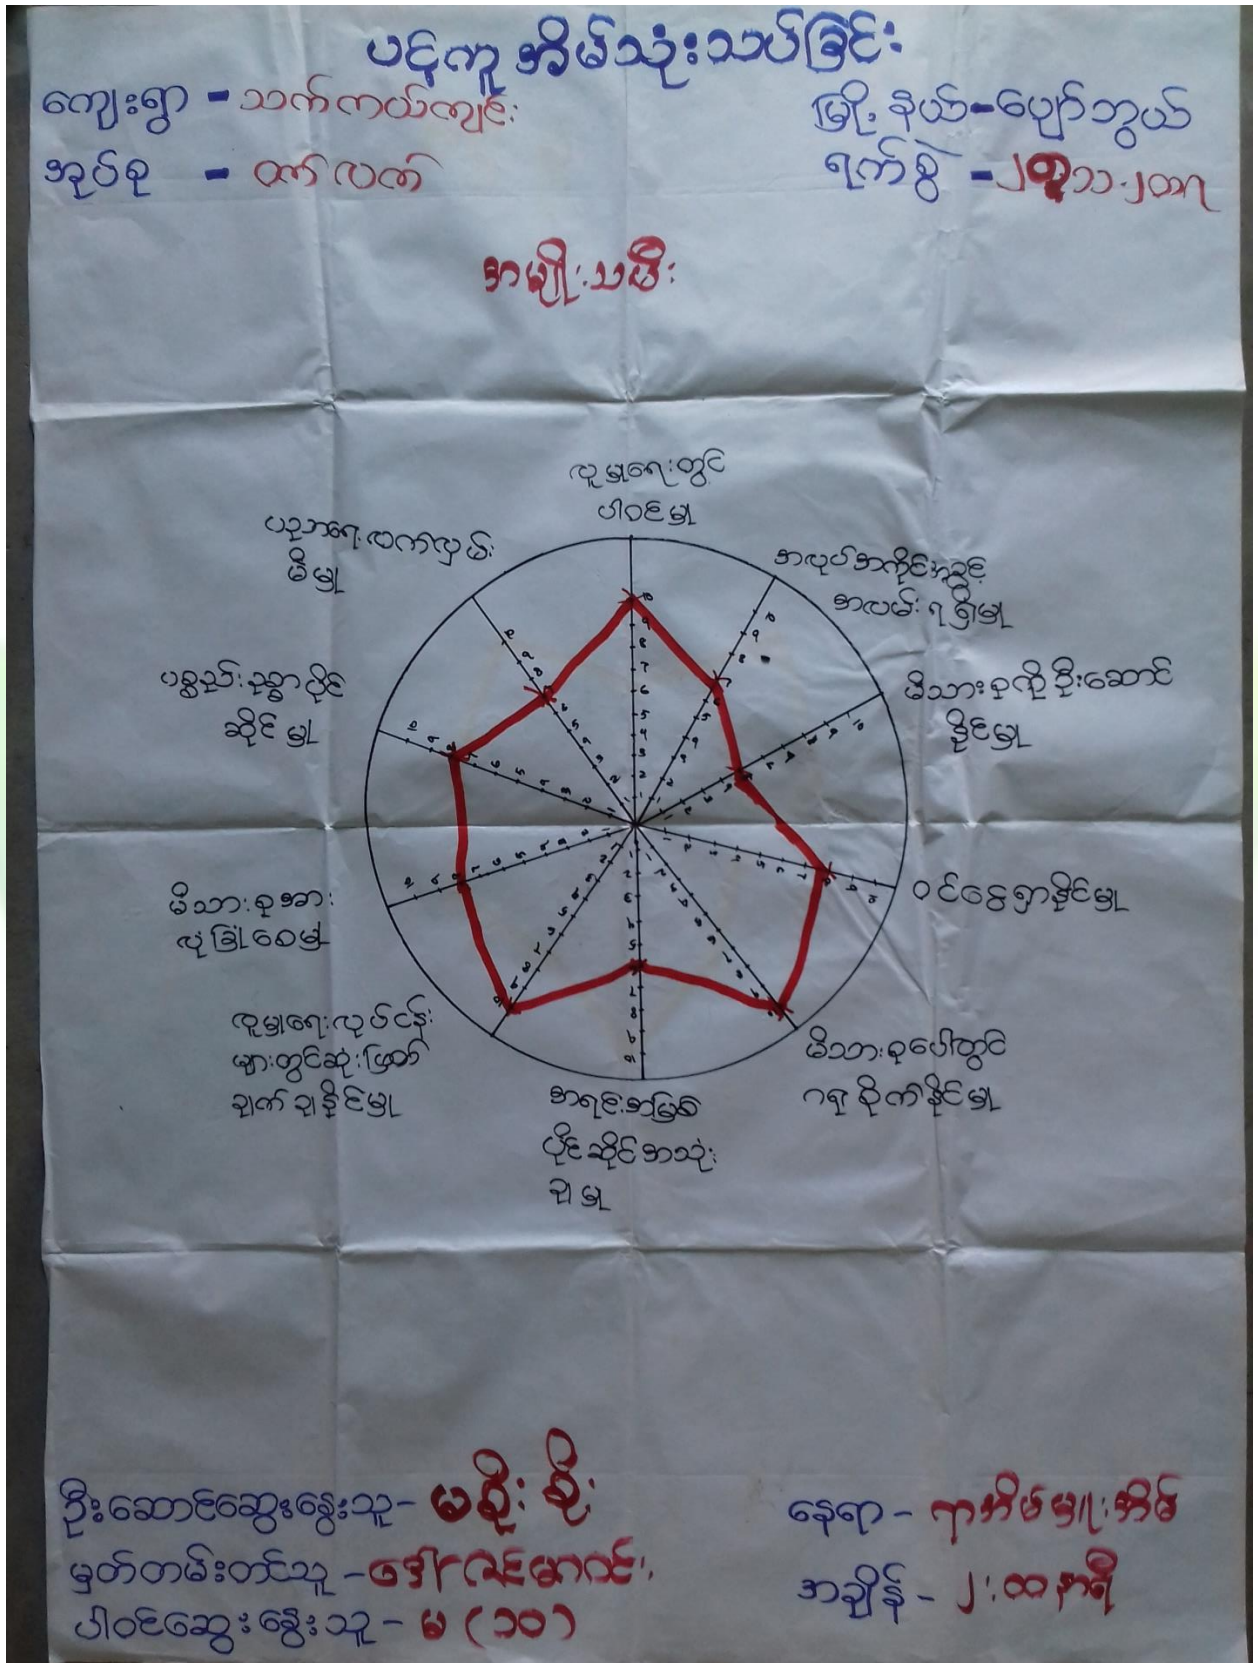 ပင့်ကူအိမ်သုံးသပ်ခြင်း
ကျေးရွာ - သက်ကယ်ကျင်း
မြို့နယ် - ပျော်ဘွယ်
အုပ်စု - ထက်လက်
ရက်စွဲ -
အမျိုးသမီး
လူမှုရေးတွင်
ပါဝင်မှု
အလုပ်အကိုင်အခွင့်
အလမ်းရရှိမှု
မိသားစုကိုဦးဆောင်
နိုင်မှု
ဝင်ငွေရှာနိုင်မှု
မိသားစုပေါ်တွင်
ဂရုစိုက်နိုင်မှု
အရင်းအမြစ်
ပိုင်ဆိုင်အသုံး
ချမှု
လူမှုရေးလုပ်ငန်း
များတွင်ဆုံးဖြတ်
ချက်ချနိုင်မှု
မိသားစုအား
လုံခြုံစေမှု
ပစ္စည်းဥစ္စာပိုင်
ဆိုင်မှု
ပညာရေးလက်လှမ်း
မီမှု
ဦးဆောင်ဆွေးနွေးသူ - မစိုးစိုး
မှတ်တမ်းတင်သူ -
ပါဝင်ဆွေးနွေးသူ - မ (၁၀)
နေရာ - ရာအိမ်မှူးအိမ်
အချိန် - ၂:ထနာရီ